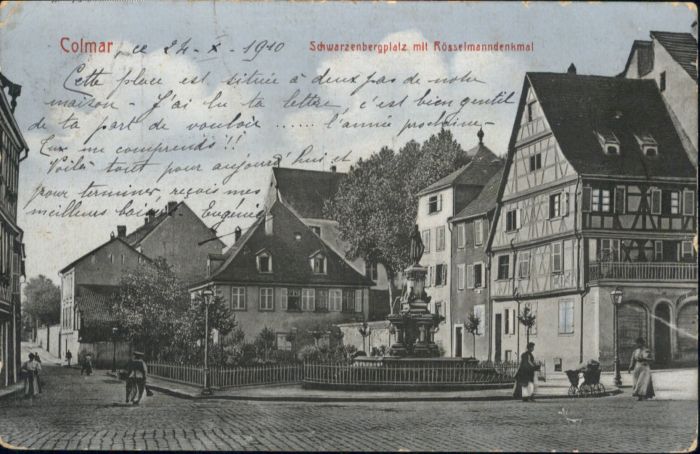 Colmar, ce 24-X-1910
Schwarzenbergplatz mit Rösselmanndenkmal
Cette place est située à deux pas de notre
maison - J'ai lu ta lettre, c'est bien gentil
de ta part de vouloir ...... l'année prochaine-
me comprends!!
Voilà tout pour aujourd'hui et
pour terminer, reçois mes
meilleurs Eugénie